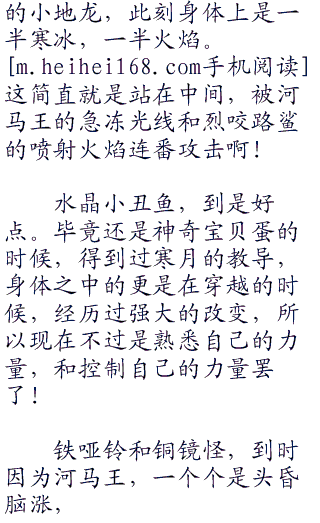 的小地龙，此刻身体上是一
半寒冰，一半火焰。
[m.heihei168.com手机阅读]
这简直就是站在中间，被河
马王的急冻光线和烈咬路鲨
的喷射火焰连番攻击啊！
水晶小丑鱼，到是好
点。毕竟还是神奇宝贝蛋的
时候，得到过寒月的教导，
身体之中的更是在穿越的时
候，经历过强大的改变，所
以现在不过是熟悉自己的力
量，和控制自己的力量罢
了！
铁哑铃和铜镜怪，到时
因为河马王，一个个是头昏
脑涨，